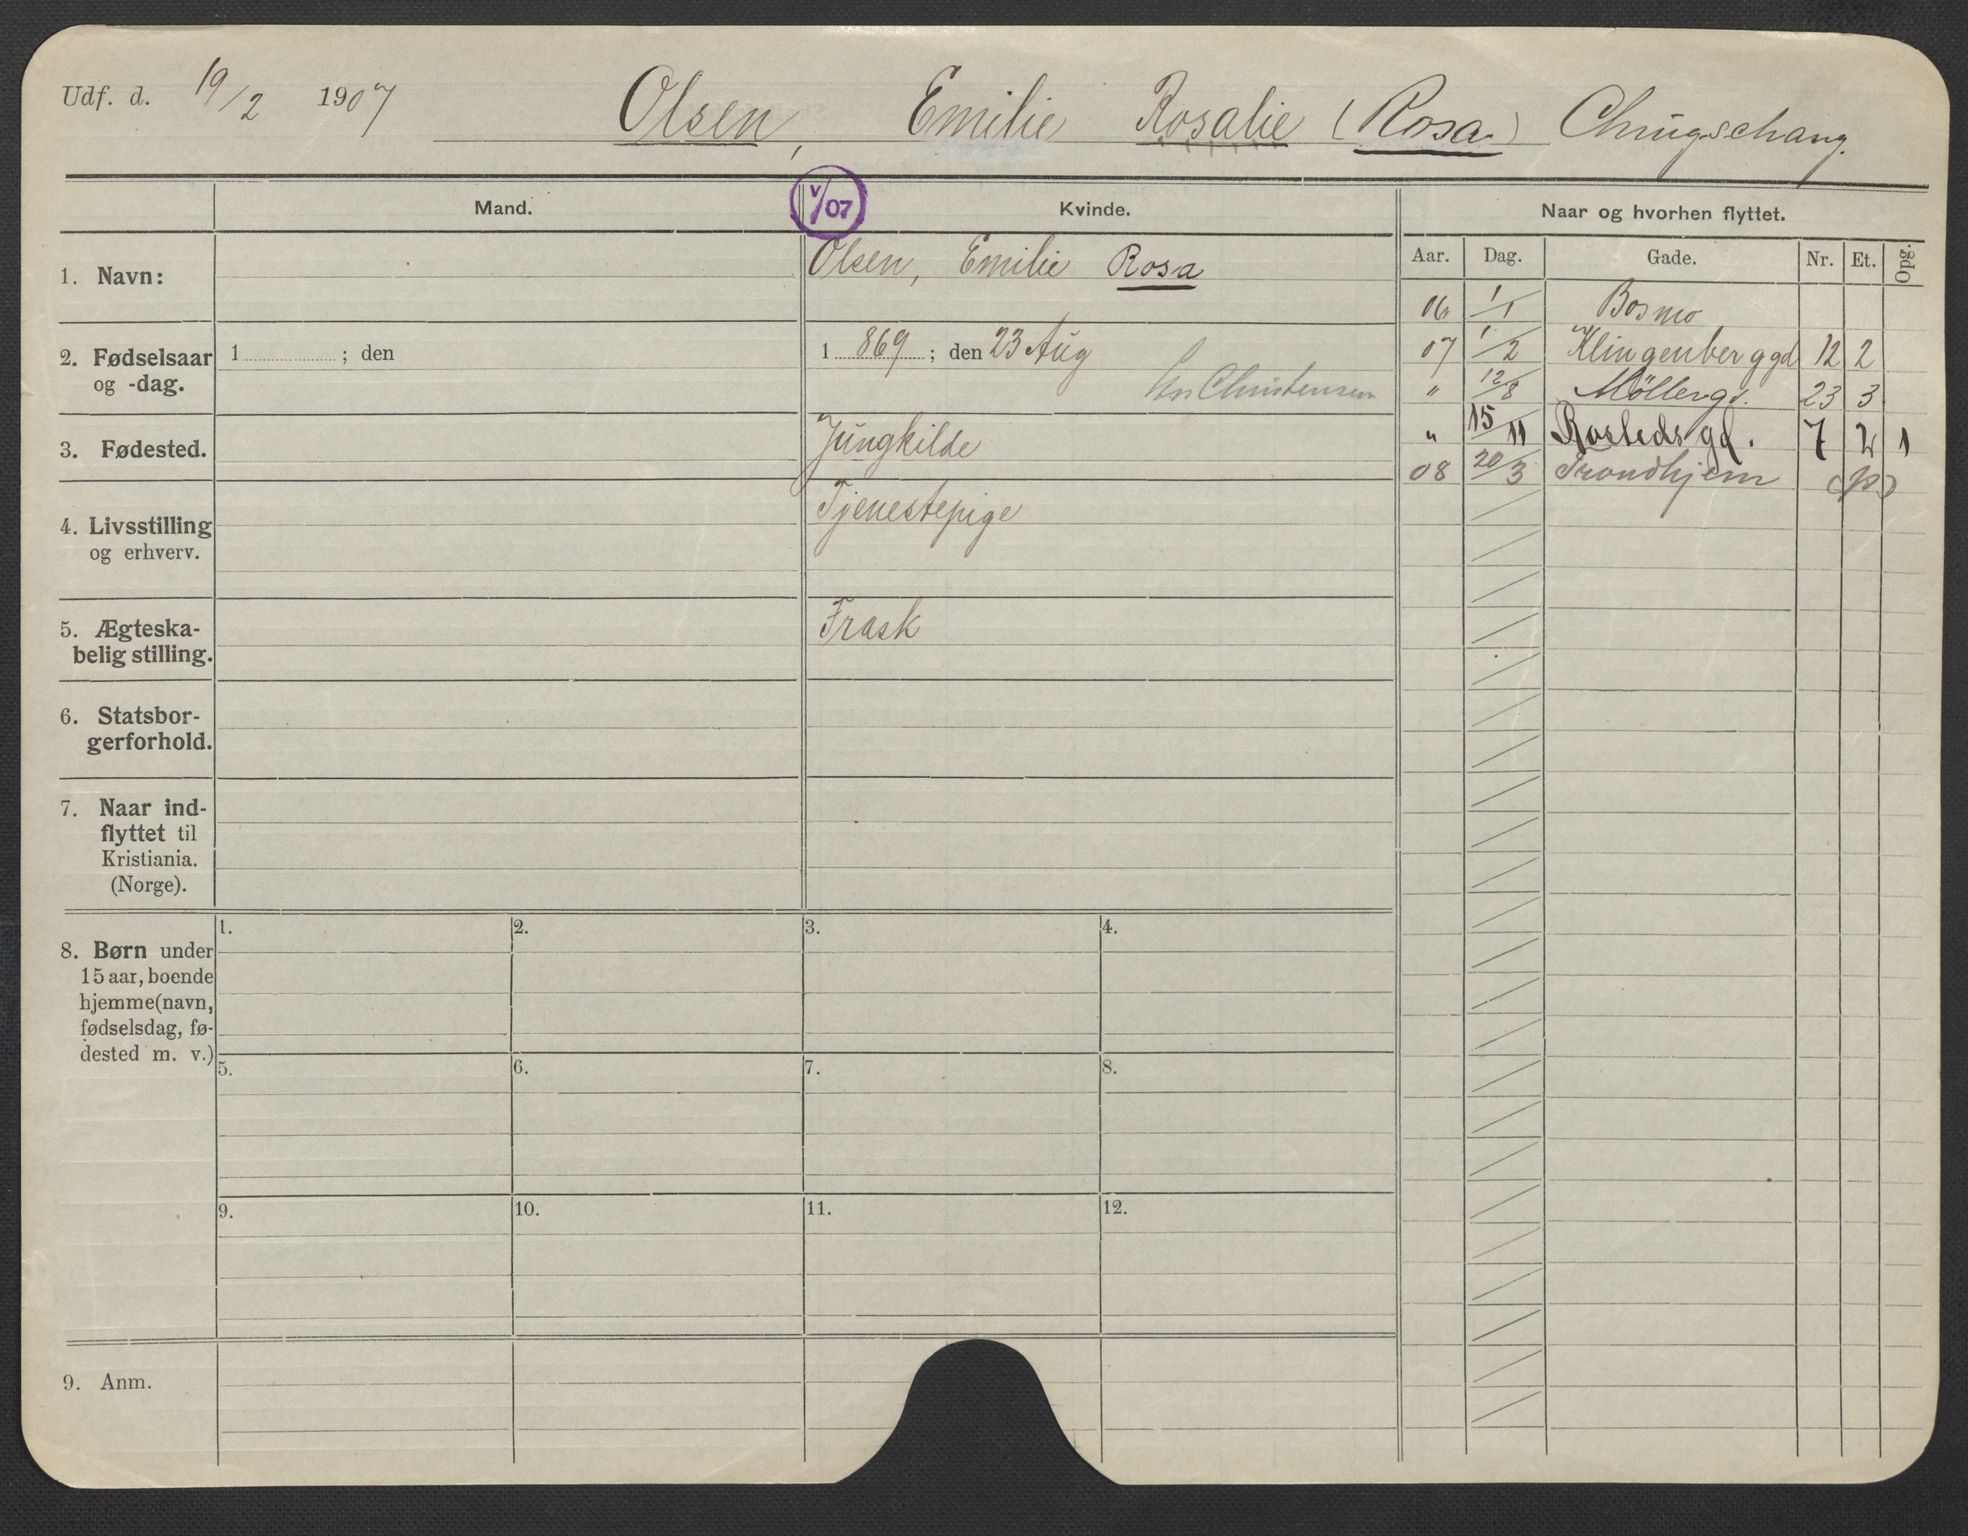 Udf. d. 19/2 1907 Olsen, Emilie Rosalie (Rosa)
Mand.
V/07
Kvinde.
Naar og hvorhen flyttet.
Aar. Dag. Gade. Nr. Et. Opg.
1. Navn:
Olsen, Emilie Rosa
2. Fødselsaar
og -dag.
1 ; den
1 869 ; den 23 Aug
Christensen
3. Fødested.
Jüngkilde
4. Livsstilling
og erhverv.
Tjenestepige
5. Ægteska-
belig stilling.
Frask
6. Statsbor-
gerforhold.
7. Naar ind-
flyttet til
Kristiania.
(Norge).
8. Børn under
15 aar, boende
hjemme (navn,
fødselsdag, fø-
dested m. v.)
1. 2. 3. 4.
5. 6. 7. 8.
9. 10. 11. 12.
9. Anm.
06 1/1 Bosmo
07 1/2 Klingenberggd 12 2
" 12/8 Möllergd. 23 3
" 15/11 Rostedsgd. 7 2 1
08 20/3 Trondhjem (p)